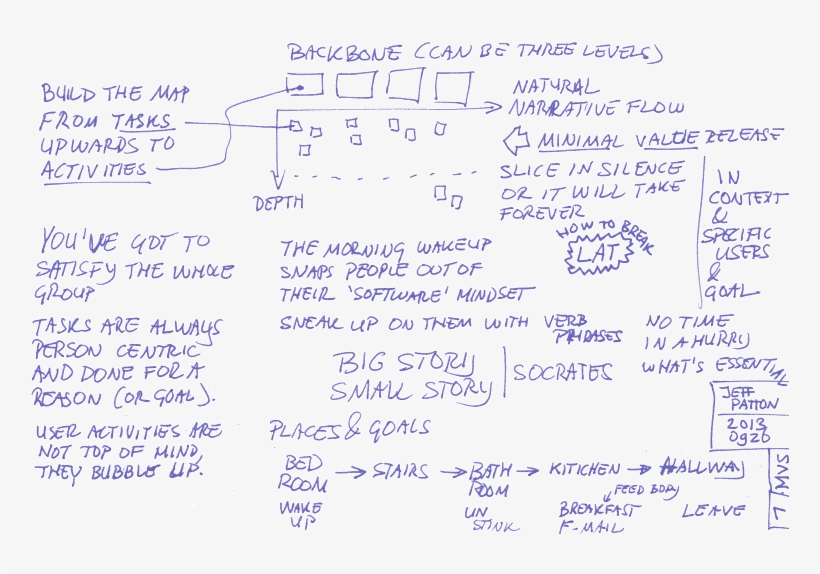 BACKBONE (CAN BE THREE LEVELS)
BUILD THE MAP
FROM TASKS
UPWARDS TO
ACTIVITIES
NATURAL
NARRATIVE FLOW
MINIMAL VALUE RELEASE
SLICE IN SILENCE
OR IT WILL TAKE
FOREVER
IN
CONTEXT
&
SPECIFIC
USERS
&
GOAL
DEPTH
HOW TO BREAK
LAT
YOU'VE GOT TO
SATISFY THE WHOLE
GROUP
THE MORNING WAKEUP
SNAPS PEOPLE OUT OF
THEIR 'SOFTWARE' MINDSET
TASKS ARE ALWAYS
PERSON CENTRIC
AND DONE FOR A
REASON (OR GOAL).
SNEAK UP ON THEM WITH VERB
PHRASES
NO TIME
IN A HURRY
WHAT'S ESSENTIAL
BIG STORY
SMALL STORY
SOCRATES
JEFF
PATTON
2013
0920
USER ACTIVITIES ARE
NOT TOP OF MIND,
THEY BUBBLE UP.
PLACES & GOALS
BED
ROOM
STAIRS
BATH
ROOM
KITICHEN
HALLWAY
WAKE
UP
UN
STINK
FEED BODY
BREAKFAST
E-MAIL
LEAVE